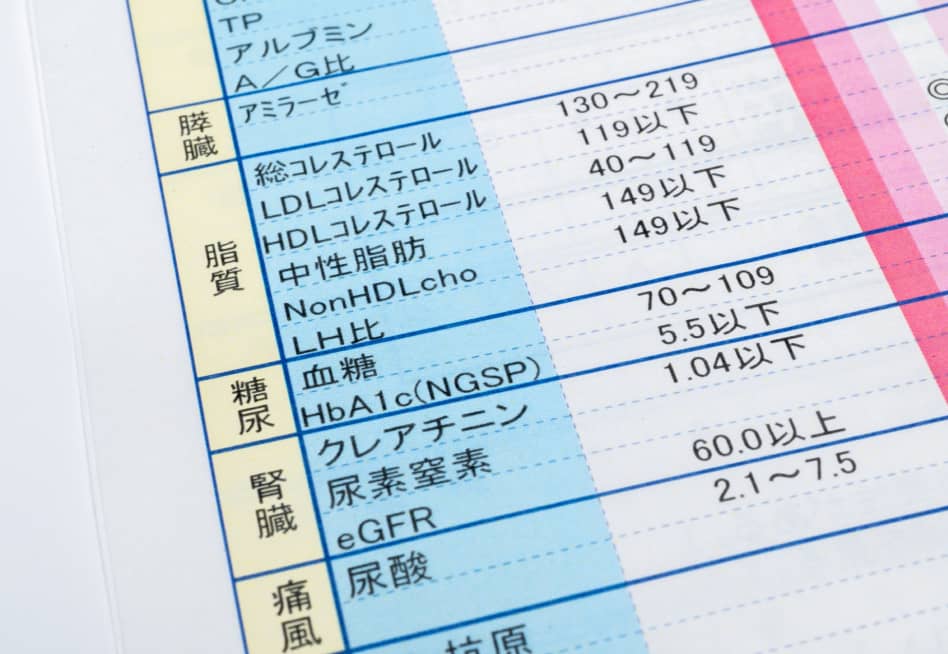 TP
アルブミン
A／G比
膵臓
アミラーゼ
脂質
総コレステロール 130～219
LDLコレステロール 119以下
HDLコレステロール 40～119
中性脂肪 149以下
NonHDLcho 149以下
LH比
糖尿
血糖 70～109
HbA1c(NGSP) 5.5以下
腎臓
クレアチニン 1.04以下
尿素窒素
eGFR 60.0以上
痛風
尿酸 2.1～7.5
抗原